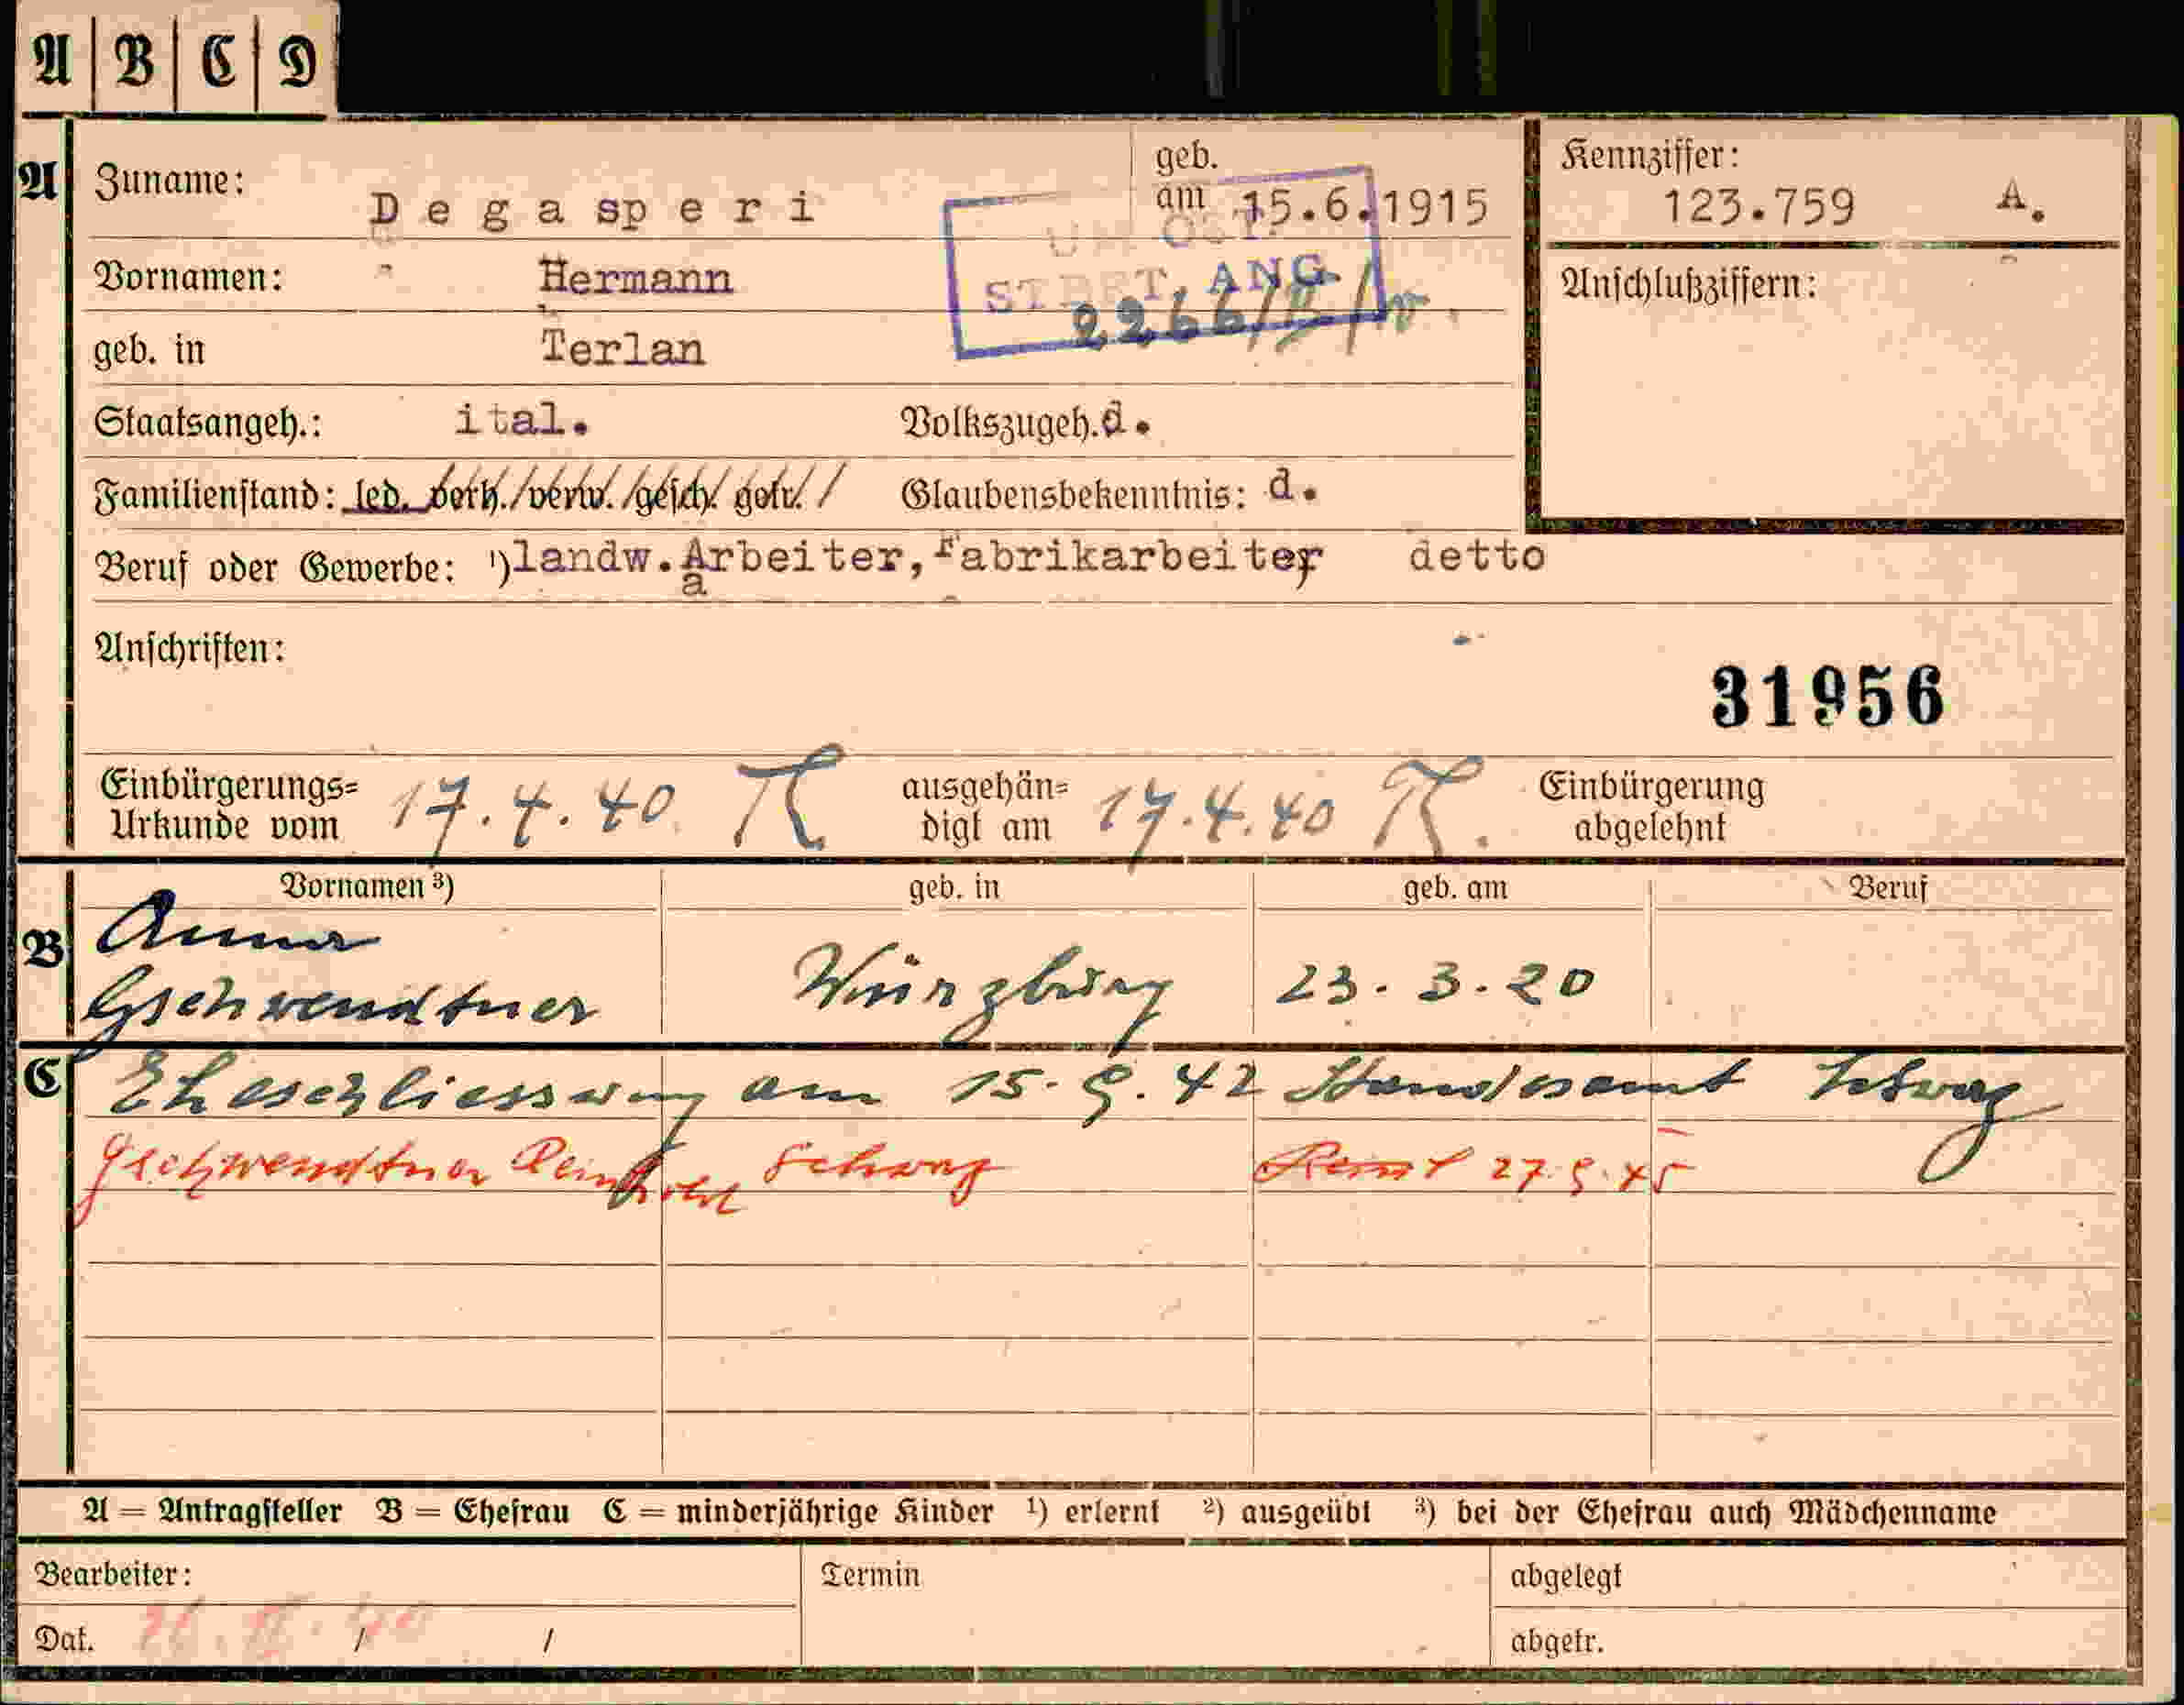 A B C D
A Zuname: Degasperi geb. am 15.6.1915 Kennziffer: 123.759 A.
Vornamen: Hermann
ST ANG
2266/
Anschlußziffern:
geb. in Terlan
Staatsangeh.: ital. Volkszugeh. d.
Familienstand: led. verh./verw./gesch/ getr./ Glaubensbekenntnis: d.
Beruf oder Gewerbe: ¹) landw.Arbeiter,Fabrikarbeiter detto
a
Anschriften:
31956
Einbürgerungs= Urkunde vom 17.4.40 ausgehän= digt am 17.4.40 Einbürgerung abgelehnt
Vornamen ³) geb. in geb. am Beruf
B Anna
Gschwendtner Würzburg 23.3.20
C Eheschliessung am 15.9.42 Standesamt
Gschwendtner Reinhold Schwaz 27.5.45
A = Antragsteller B = Ehefrau C = minderjährige Kinder ¹) erlernt ²) ausgeübt ³) bei der Ehefrau auch Mädchenname
Bearbeiter: Termin abgelegt
Dat. / / abgetr.